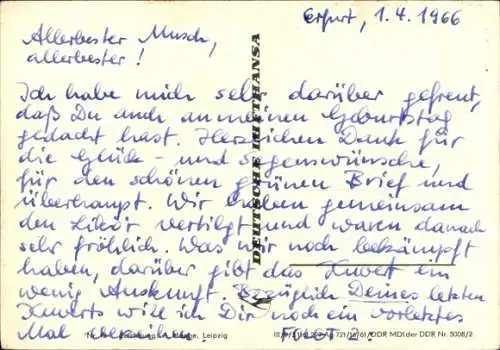 Erfurt, 1.4.1966
Allerbester Musch,
allerbester!
Ich habe mich sehr darüber gefreut,
daß Du auch an meinen Geburtstag
gedacht hast. Herzlichen Dank für
die Glück- und Segenswünsche,
für den schönen grünen Brief und
überhaupt. Wir haben gemeinsam
den Likör vertilgt und waren danach
sehr fröhlich. Was wir noch bekämpft
haben, darüber gibt das Kuvert ein
wenig Auskunft. Bezüglich Deines letzten
Kuverts will ich Dir noch ein vorletztes
Mal verzeihen.
DEUTSCHE LUFTHANSA
Leipzig
DDR MDI der DDR Nr. 5008/2